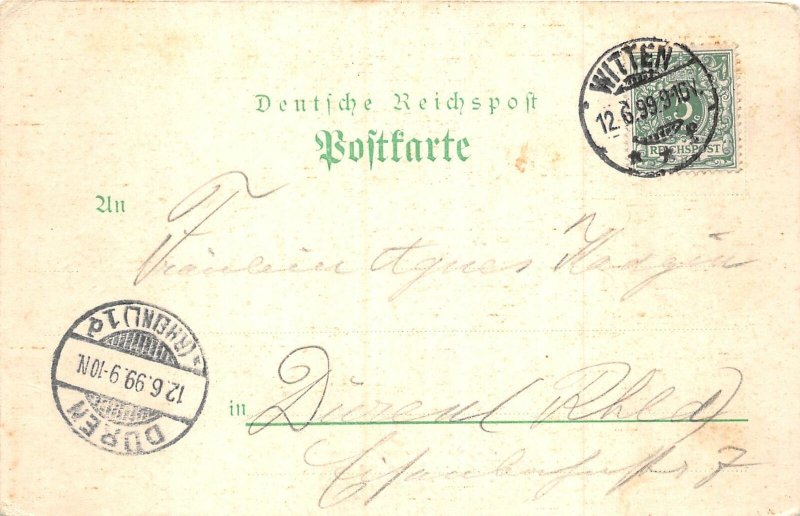 Deutsche Reichspost
Postkarte
WITTEN
12.6.99.9-10V.
* * e
5
REICHSPOST
An
Fräulein Agnes
DÜREN
12.6.99.9-10N.
*(RHEINL)1d
in Düren (Rhld)
Eisenbahnstr 7